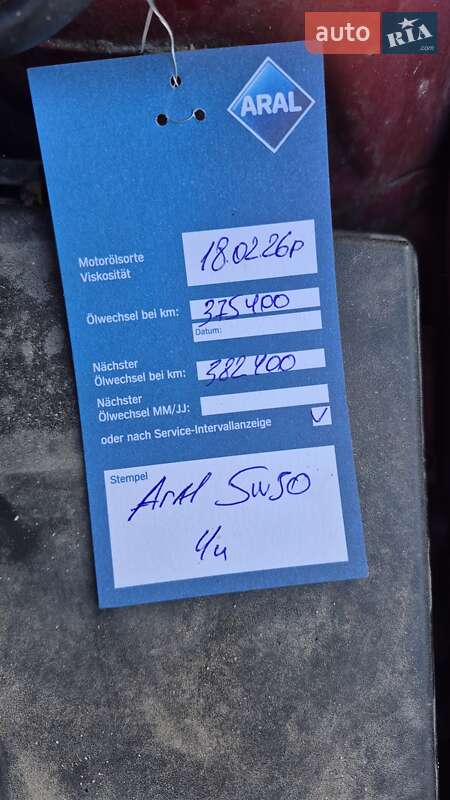 auto RIA.com
ARAL
Motorölsorte
Viskosität
18.02.26р
Ölwechsel bei km: 375400
Datum:
Nächster
Ölwechsel bei km: 382400
Nächster
Ölwechsel MM/JJ:
oder nach Service-Intervallanzeige ✓
Stempel
Aral 5w50